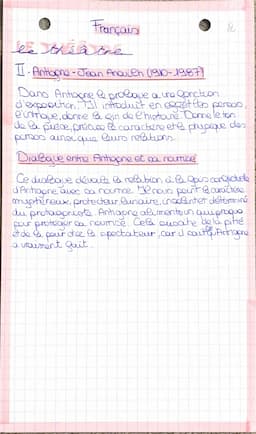 Français
II. Antigone - Jean Anouilh (1910-1987)
Dans Antigone le prologue a une fonction
d'exposition. Il introduit en effet les persos,
l'intrigue, donne la fin de l'histoire. Donne le ton
de la pièce, précise le caractère et le physique des
persos ainsi que leurs relations.
Dialogue entre Antigone et sa nourrice
Ce dialogue dévoile la relation à la fois
d'Antigone avec sa nourrice. Il nous peint le caractère
mystérieux, protecteur, lunaire, déterminé
du protagoniste. Antigone alimente un quiproquo
pour protéger sa nourrice. Cela suscite de la pitié
et de la peur chez le spectateur, car il Antigone
a vraiment fuit.